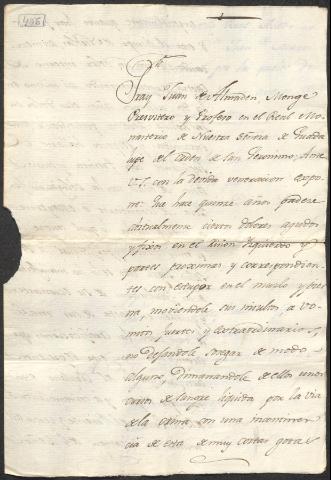 455
Fray Juan de Almaden, Monge
Presvitero y Profeso en el Real Mo-
nasterio de Nuestra Señora de Guada-
lupe del orden de San Geronimo, Ante
V. S. con la devida veneracion expo-
ne: Que hace quince años padece
continualmente ciertos dolores agudos
y fixos en el riñon izquierdo y
partes proximas y correspondien-
tes con estupor en el muslo y pier
na, moviendole sus insultos, a vo-
mitos fuertes y extraordinarios,
no dejandole sosegar de modo
alguno, dimanandole de ellos unos
de sangre liquida por la via
de la orina con una
cia de esta de muy cortas gotas